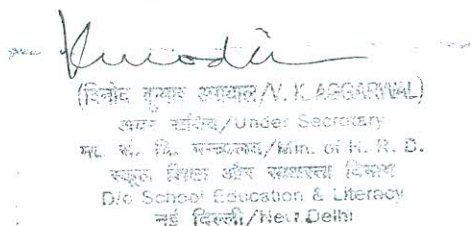 Vinodir
(विनोद कुमार अग्रवाल/V. K. AGGARWAL)
अवर सचिव/Under Secretary
मा. सं. वि. मन्त्रालय/Min. of H. R. D.
स्कूल शिक्षा और साक्षरता विभाग
D/o School Education & Literacy
नई दिल्ली/New Delhi